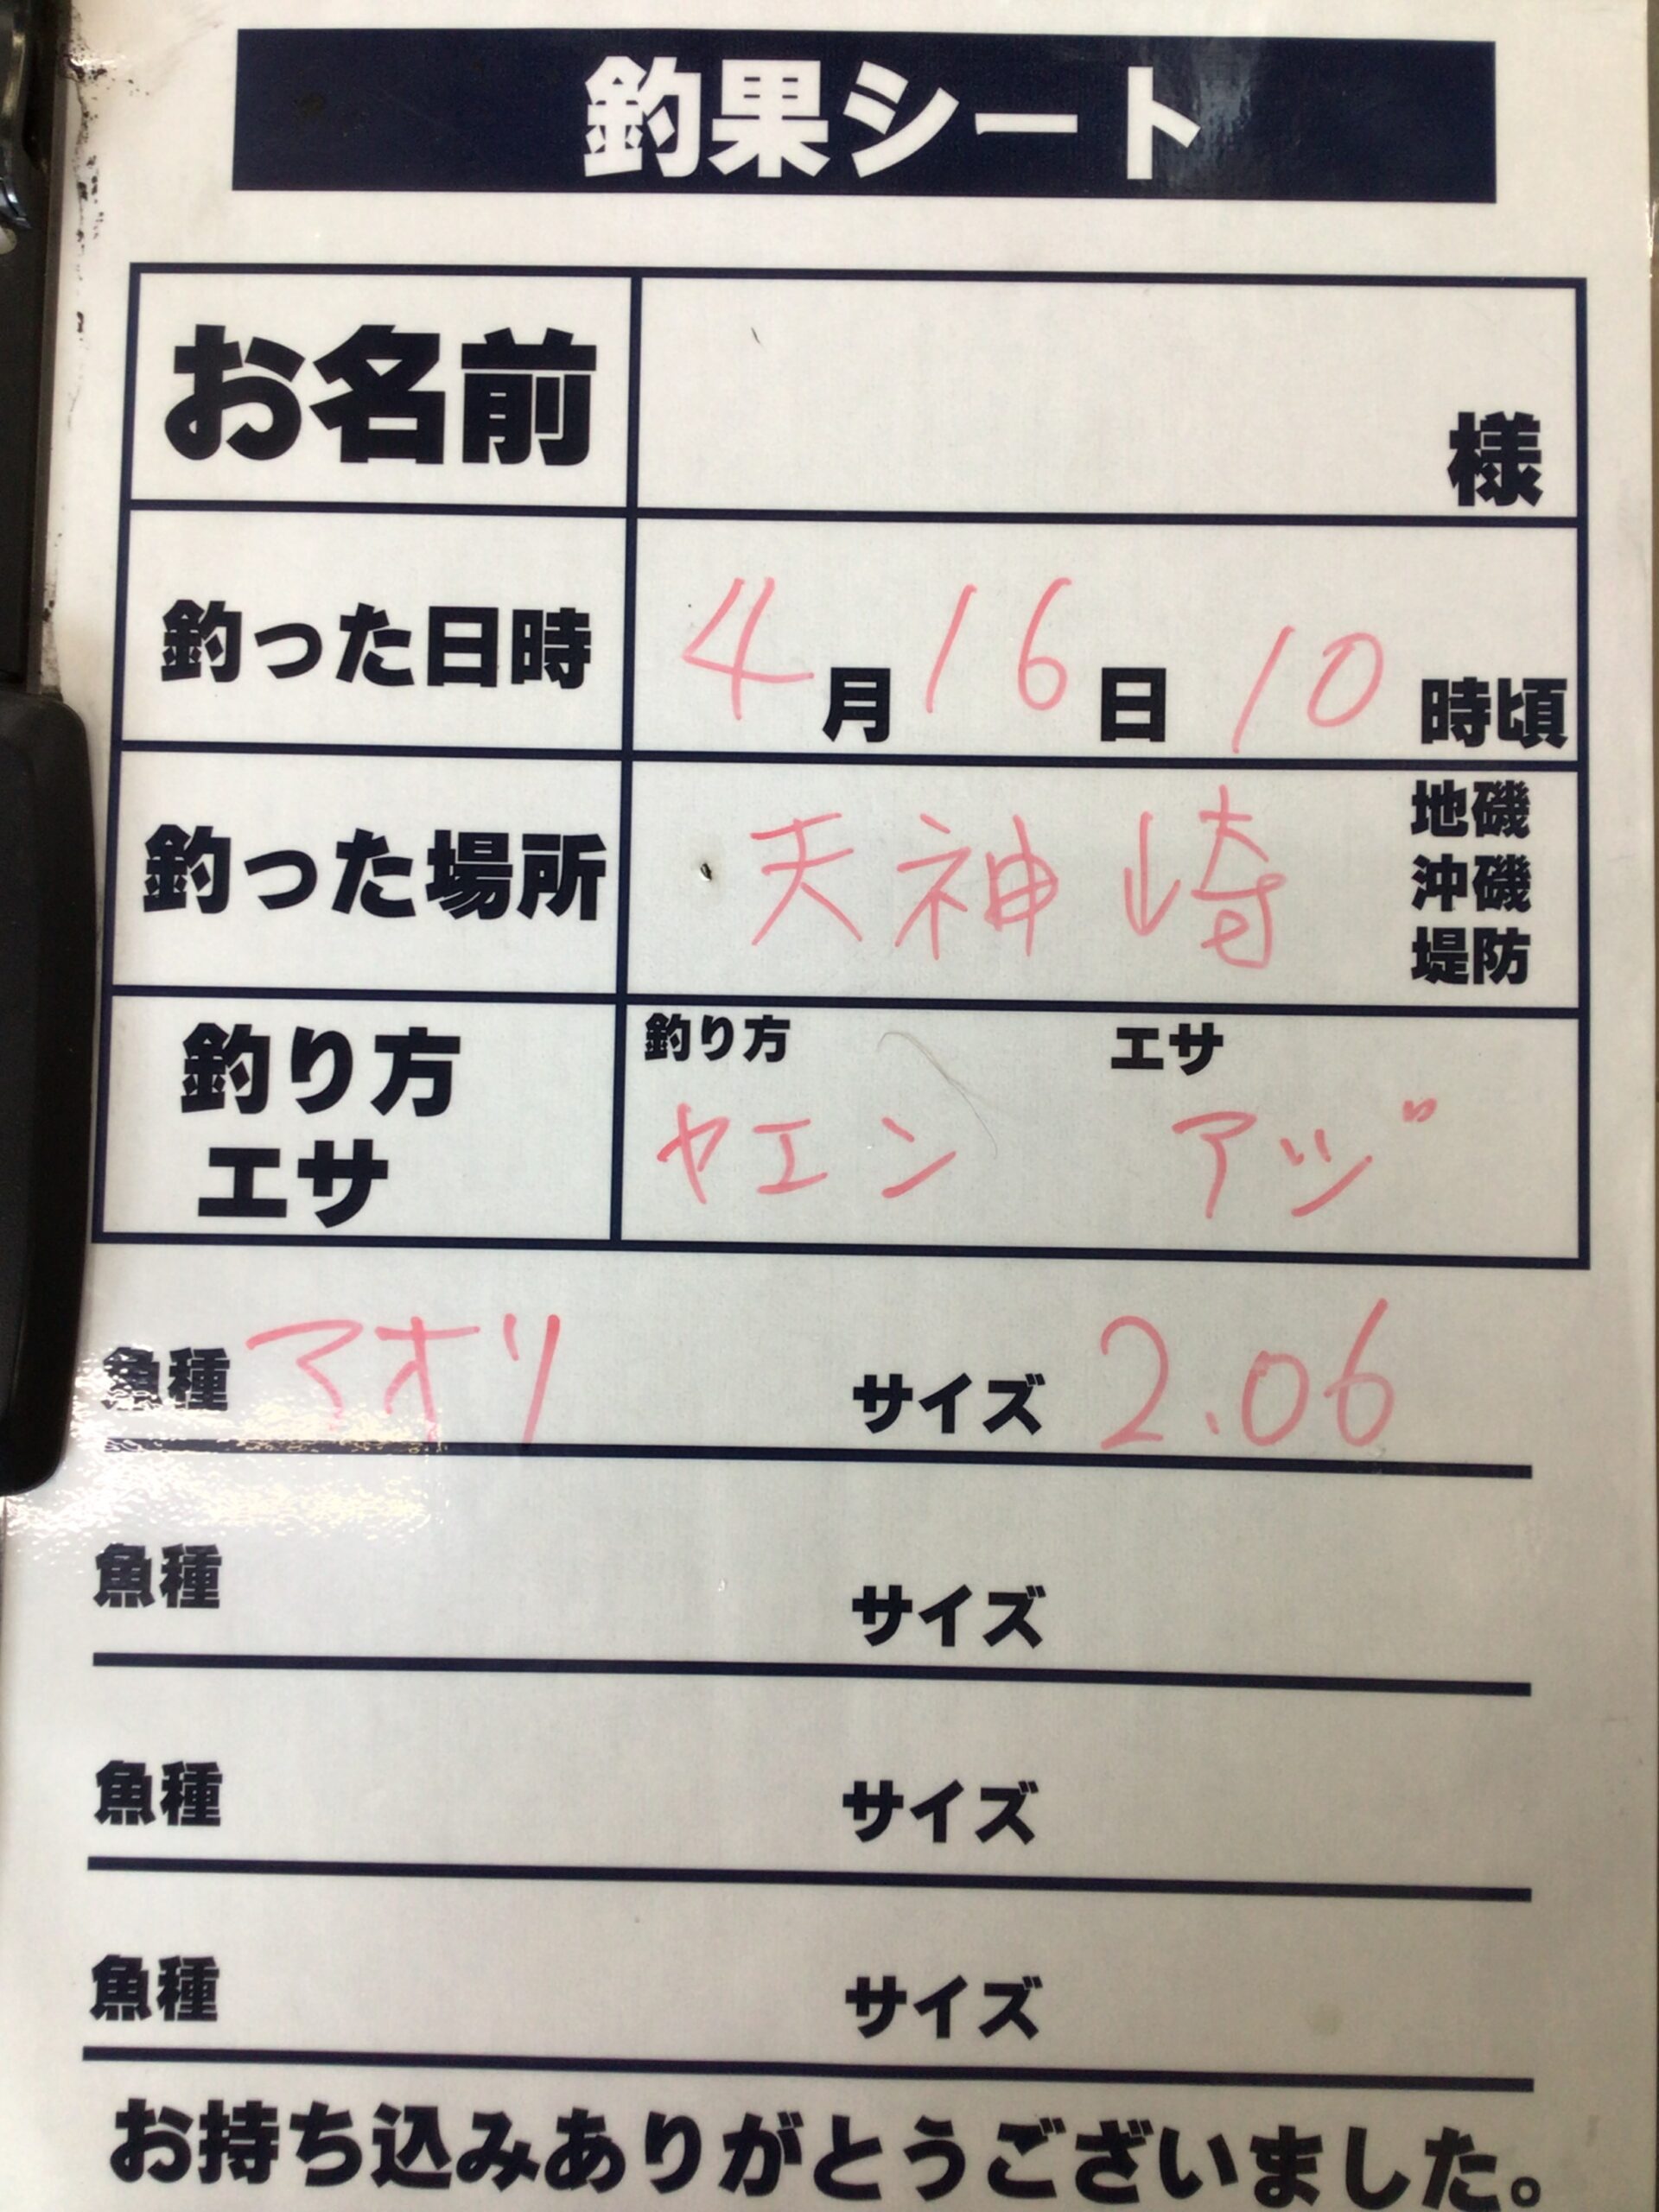 釣果シート
お名前 様
釣った日時 4月16日 10時頃
釣った場所 天神崎 地磯
沖磯
堤防
釣り方
エサ
釣り方 エサ
ヤエン アジ
魚種 アオリ サイズ 2.06
魚種 サイズ
魚種 サイズ
魚種 サイズ
お持ち込みありがとうございました。